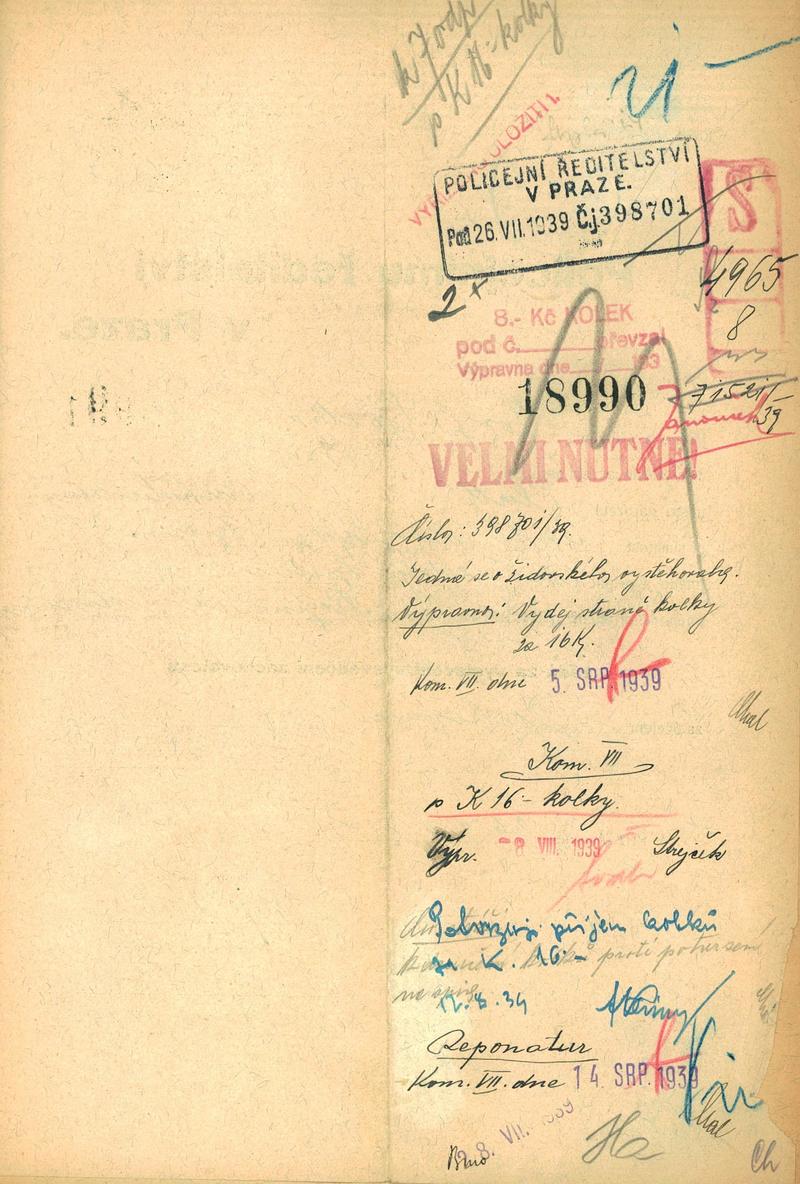 p K 16·- kolky
POLICEJNÍ ŘEDITELSTVÍ
V PRAZE.
Pod 26.VII.1939 Čj 398701
S
2x
4965
8
8.- Kč KOLEK
pod č. převzal
Výpravna dne 193
18990
71521/39
VELMI NUTNÉ!
Číslo: 398701/39.
Jedná se o židovského vystěhovalce.
Výpravna: Vydej straně kolky
za 16K.
Kom. VII. dne 5. SRP. 1939
Kom. VII
p K 16·- kolky.
Výpr. -8 VIII. 1939 Strejček
Potvrzuji příjem kolků
za K. 16.-
proti potvrzení
na spise
Reponatur
Kom. VII. dne 14. SRP. 1939
8. VII. 1939
Ch